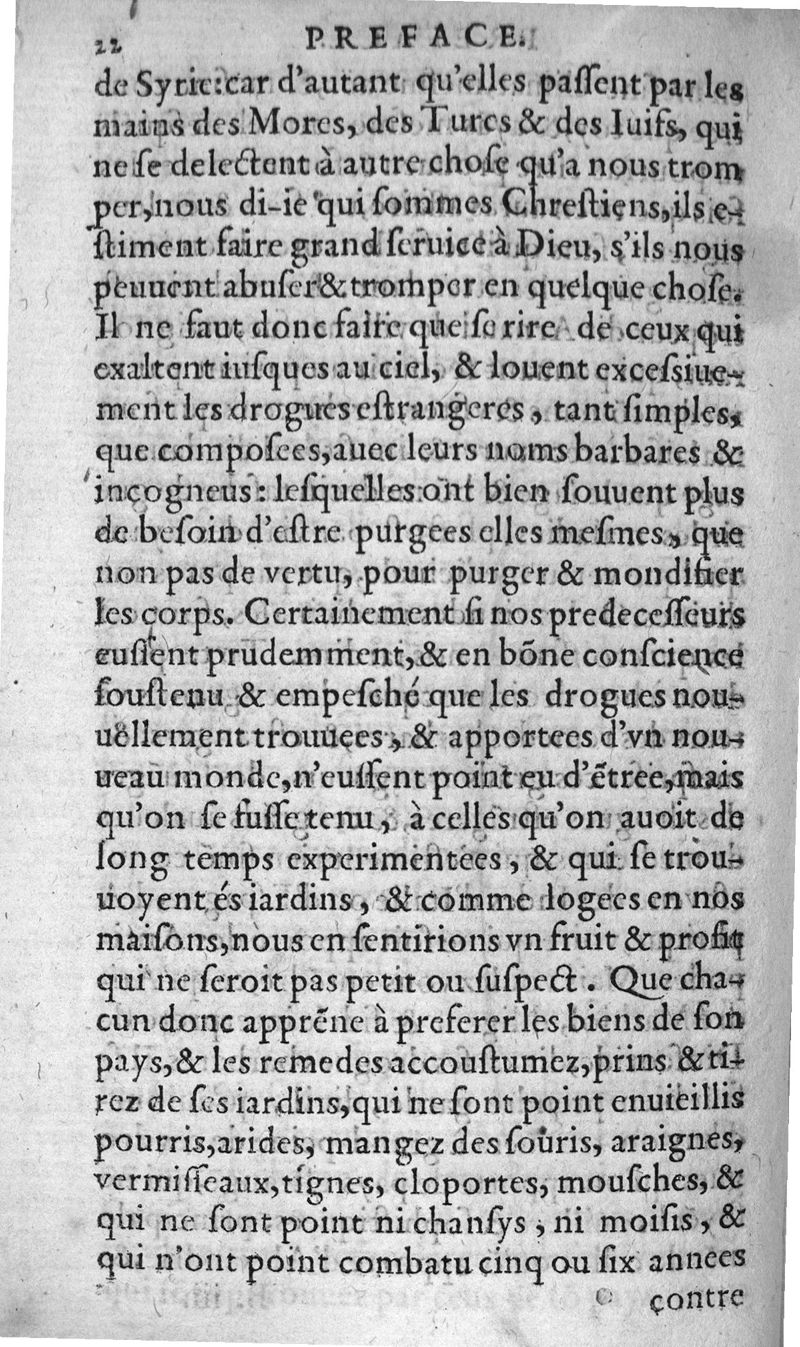 22 PREFACE.
de Syrie: car d'autant qu'elles paſſent par les
mains des Mores, des Turcs & des Iuifs, qui
ne ſe delectent à autre choſe qu'a nous trom
per, nous di-ie qui ſommes Chreſtiens, ils e-
ſtiment faire grand ſeruice à Dieu, s'ils nous
peuuent abuſer & tromper en quelque choſe.
Il ne faut donc faire que ſe rire de ceux qui
exaltent iuſques au ciel, & louent exceſsiue-
ment les drogues eſtrangeres, tant ſimples,
que compoſees, auec leurs noms barbares &
incogneus: leſquelles ont bien ſouuent plus
de beſoin d'eſtre purgees elles meſmes, que
non pas de vertu, pour purger & mondifier
les corps. Certainement ſi nos predeceſſeurs
euſſent prudemment, & en bōne conſcience
ſouſtenu & empeſché que les drogues nou-
uellement trouuees, & apportees d'vn nou-
ueau monde, n'euſſent point eu d'ētree, mais
qu'on ſe fuſſe tenu, à celles qu'on auoit de
long temps experimentees, & qui ſe trou-
uoyent és iardins, & comme logees en nos
maiſons, nous en ſentirions vn fruit & profit
qui ne ſeroit pas petit ou ſuſpect. Que cha-
cun donc apprēne à preferer les biens de ſon
pays, & les remedes accouſtumez, prins & ti-
rez de ſes iardins, qui ne ſont point enuieillis
pourris, arides, mangez des ſouris, araignes,
vermiſſeaux, tignes, cloportes, mouſches, &
qui ne ſont point ni chanſys, ni moiſis, &
qui n'ont point combatu cinq ou ſix annees
contre